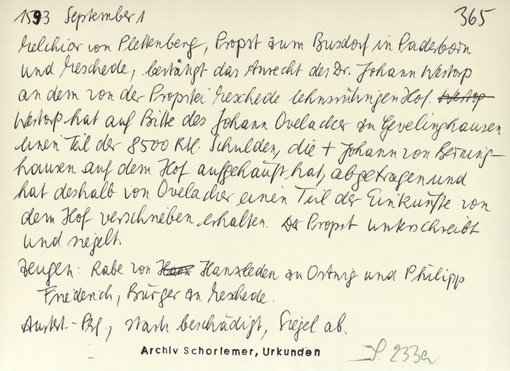 1593 September 1
365
Melchior von Plettenberg, Propst zum Busdorf in Paderborn
und Meschede, bestätigt das Anrecht des Dr. Johann Westorp
an dem von der Propstei Meschede lehnsrührigen Hof. Westop
Westorp hat auf Bitte des Johann Ovelacker zu Gevelinghausen
einen Teil der 8500 Rtl. Schulden, die + Johann von Berning-
hausen auf dem Hof aufgehäuft hat, abgetragen und
hat deshalb von Ovelacker einen Teil der Einkünfte von
dem Hof verschrieben erhalten. Der Propst unterschreibt
und siegelt.
Zeugen: Rabe von Hanxleden zu Ostwig und Philipp
Friederich, Bürger zu Meschede.
Ausfert.-Pg., stark beschädigt, Siegel ab.
Archiv Schorlemer, Urkunden
S. 233a